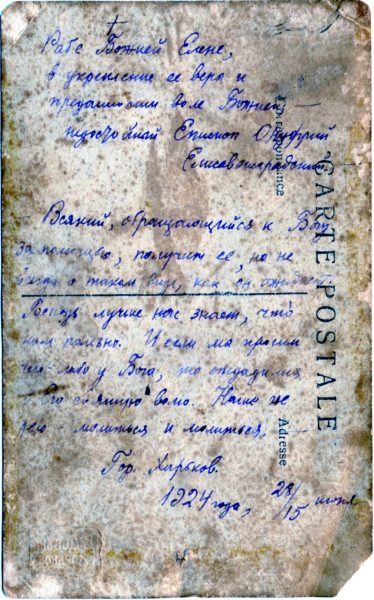 Рабе Божией Елене,
в укрепление ее веры и
преданности воле Божией –
недостойный Епископ Онуфрий
Елисаветградский
– Всякий, обращающийся к Богу
за помощью, получит ее, но не
всегда в таком виде, как он ожидает.
Господь лучше нас знает, что
нам полезно. И если мы просим
чего-либо у Бога, то
Его святую волю. Наше же
дело – молиться и молиться.
Гор. Харьков.
1924 года, 28/15 июня
CARTE POSTALE
Correspondance
Adresse